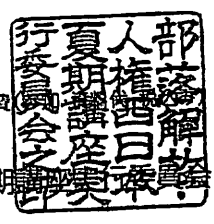 部落解放・
人権西日本
夏期講座実
行委員会之印